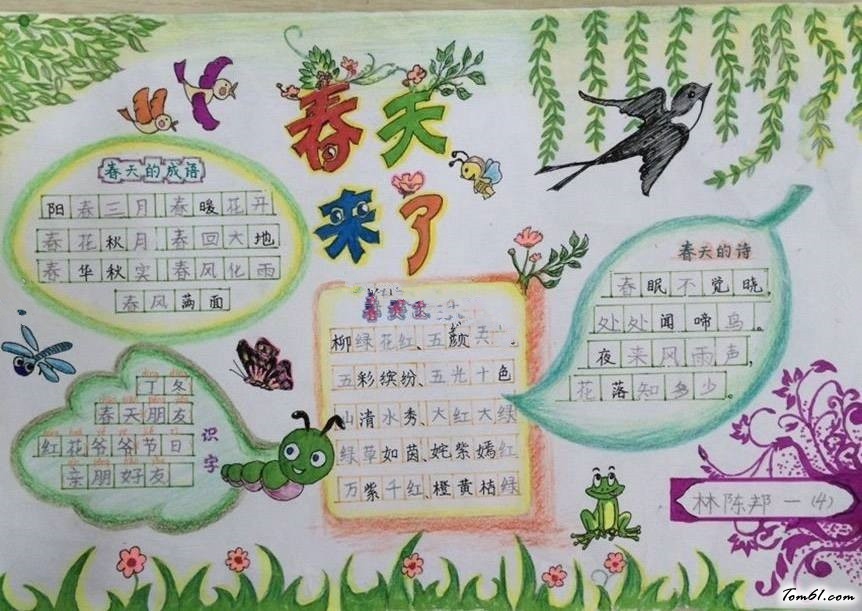 春天
来了
春天的成语
阳春三月 春暖花开
春花秋月 春回大地
春华秋实 春风化雨
春风满面
春天的诗
春眠不觉晓，
处处闻啼鸟。
夜来风雨声，
花落知多少。
柳绿花红、五颜
五彩缤纷、五光十色
山清水秀、大红大绿
绿草如茵、姹紫嫣红
万紫千红、橙黄桔绿
丁冬
春天朋友
红花爷爷节日
亲朋好友
识字
林陈邦 一(4)
Tom61.com